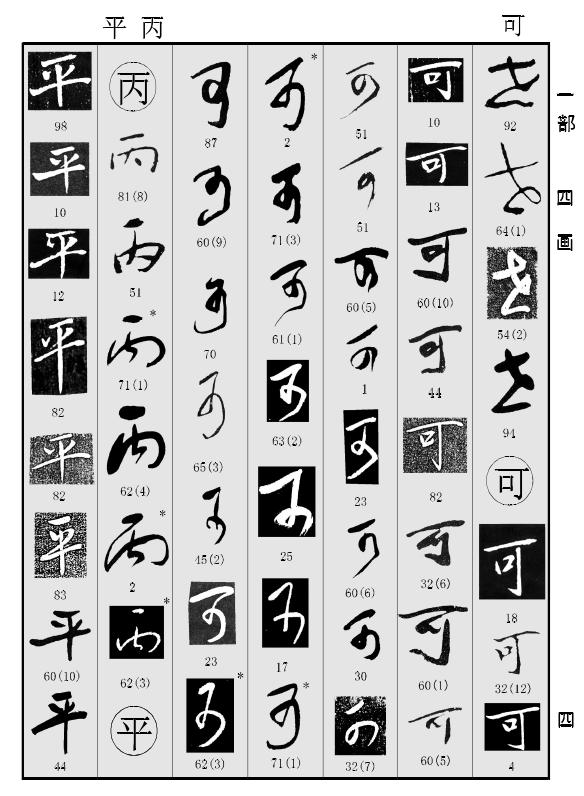 平 丙
可
一部 四画
四
世
92
世
64(1)
世
54(2)
世
94
可
可
18
可
32(12)
可
4
可
10
可
13
可
60(10)
可
44
可
82
可
32(6)
可
60(1)
可
60(5)
可
51
可
51
可
60(5)
可
1
可
23
可
60(6)
可
30
可
32(7)
可*
2
可
71(3)
可
61(1)
可
63(2)
可
25
可
17
可*
71(1)
可
87
可
60(9)
可
70
可
65(3)
可
45(2)
可
23
可*
62(3)
丙
丙
81(8)
丙
51
丙*
71(1)
丙
62(4)
丙*
2
丙*
62(3)
平
平
98
平
10
平
12
平
82
平
82
平
83
平
60(10)
平
44